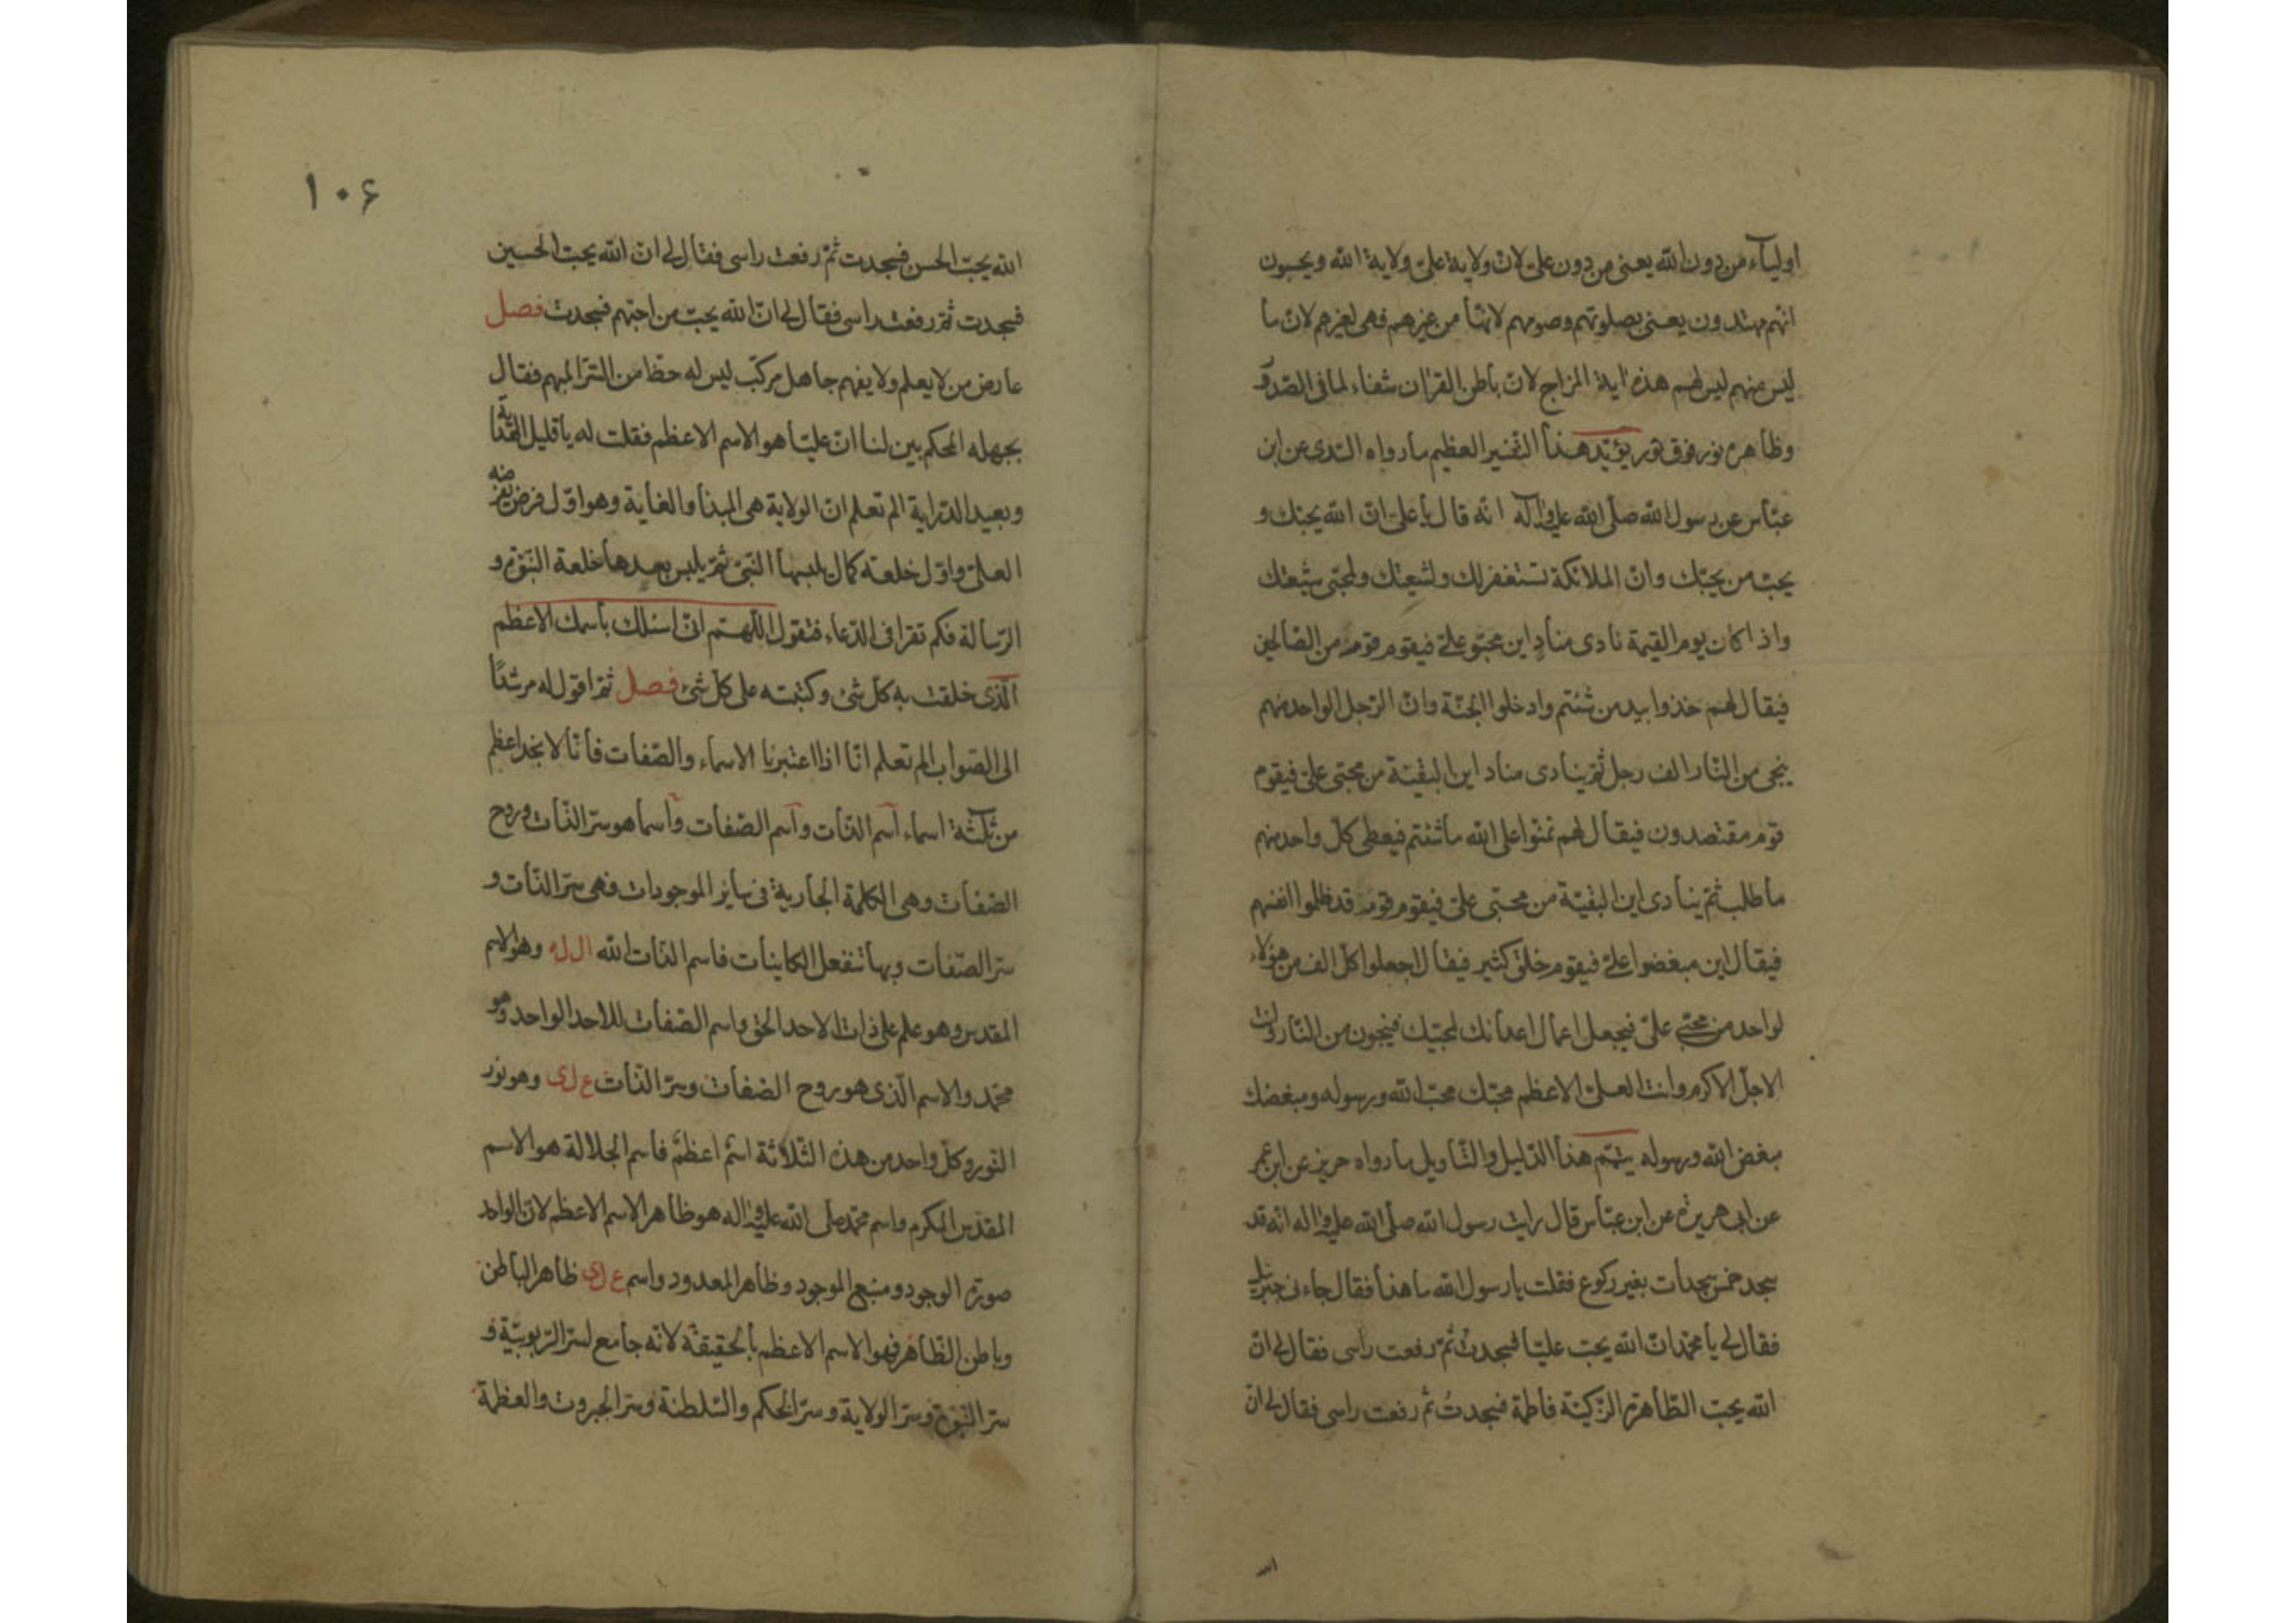 اولیآء من دون الله یعنی من دون علی لان ولایة علی ولایة الله ویحسبون
انهم مهتدون یعنی بصلوتهم وصومهم لانها من غیرهم فهی لغیرهم لان ما
لیس منهم لیس لهم هذه ایة المزاج لان باطن القران شفاء لما فی الصدور
وظاهره نور فوق نور یؤید هذا التفسیر العظیم ما رواه السدی عن ابن
عباس عن رسول الله صلی الله علیه وآله انه قال یا علی ان الله یحبک و
یحب من یحبک وان الملائکة تستغفر لک ولشیعتک ولمحبی شیعتک
واذا کان یوم القیمة نادی مناد این محبو علی فیقوم قوم من الصالحین
فیقال لهم خذوا بید من شئتم وادخلوا الجنة وان الرجل الواحد منهم
ینجی من النار الف رجل ثم ینادی مناد این البقیة من محبی علی فیقوم
قوم مقتصدون فیقال لهم تمنوا علی الله ما شئتم فیعطی کل واحد منهم
ما طلب ثم ینادی این البقیة من محبی علی فیقوم قوم قد ظلموا انفسهم
فیقال این مبغضوا علی فیقوم خلق کثیر فیقال اجعلوا کل الف من هؤلاء
لواحد من محبی علی فیجعل اعمال اعدائک لمحبیک فینجون من النار وانت
الاجل الاکرم وانت العلی الاعظم محبک محب الله ورسوله ومبغضک
مبغض الله ورسوله یتمم هذا الدلیل والتاویل ما رواه حریز عن ابن عمر
عن ابی هریرة عن ابن عباس قال رایت رسول الله صلی الله علیه واله انه قد
سجد خمس سجدات بغیر رکوع فقلت یا رسول الله ما هذا فقال جاءنی جبرئیل
فقال لی یا محمد ان الله یحب علیا فسجدت ثم رفعت راسی فقال لی ان
الله یحب الطاهرة الزکیة فاطمة فسجدتُ ثم رفعت راسی فقال لی ان
۱۰۶
الله یحب الحسن فسجدت ثم رفعت راسی فقال لی ان الله یحب الحسین
فسجدت ثم رفعت راسی فقال لی ان الله یحب من احبهم فسجدت فصل
عارض من لا یعلم ولا یفهم جاهل مرکب لیس له حظا من السر المبهم فقال
بجهله المحکم بین لنا ان علیا هو الاسم الاعظم فقلت له یا قلیل الهدایة
وبعید الدرایة الم تعلم ان الولایة هی المبدأ والغایة وهو اول فرض فرضه
العلی واول خلعة کمال یلبسها النبی ثم یلبس بعدها خلعة النبوة و
الرسالة فکم تقرا فی الدعاء فتقول اللهم انی اسئلک باسمک الاعظم
الذی خلقت به کل شیء وکتبته علی کل شیء فصل ثم اقول له مرشدًا
الی الصواب الم تعلم انا اذا اعتبرنا الاسماء والصفات فانا لا نجد اعظم
من ثلثة اسماء اسم الذات واسم الصفات واسما هو سر الذات وروح
الصفات وهی الکلمة الجاریة فی سایر الموجودات فهی سر الذات و
سر الصفات وبها تنفعل الکاینات فاسم الذات الله ال له وهو الاسم
المقدس وهو علم علی ذات الاحد الحق واسم الصفات للاحد الواحد وهو
محمد والاسم الذی هو روح الصفات وسر الذات ع ل ی وهو نور
النور وکل واحد من هذه الثلاثة اسم اعظم فاسم الجلالة هو الاسم
المقدس المکرم واسم محمد صلی الله علیه واله هو ظاهر الاسم الاعظم لان الواحد
صورة الوجود ومنبع الموجود وظاهر المعدود واسم ع ل ی ظاهر الباطن
وباطن الظاهر فهو الاسم الاعظم بالحقیقة لانه جامع لسر الربوبیة و
سر النبوة وسر الولایة وسر الحکم والسلطنة وسر الجبروت والعظمة